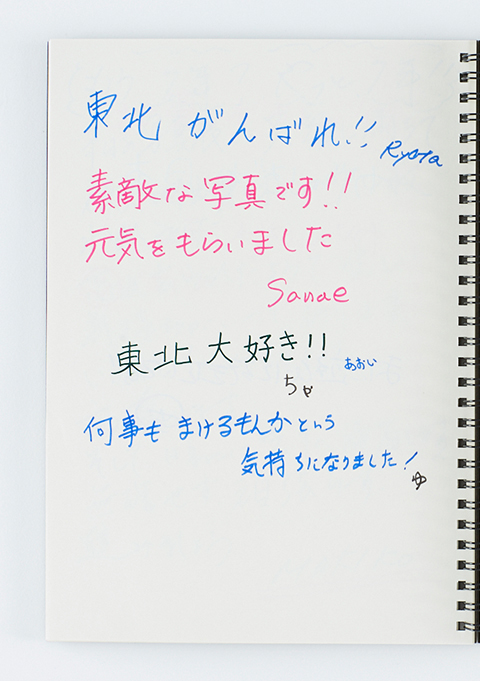 東北 がんばれ!! Ryota
素敵な写真です!!
元気をもらいました
Sanae
東北 大好き!!
ちゃ
あおい
何事も まけるもんかという
気持ちになりました!
ゆ